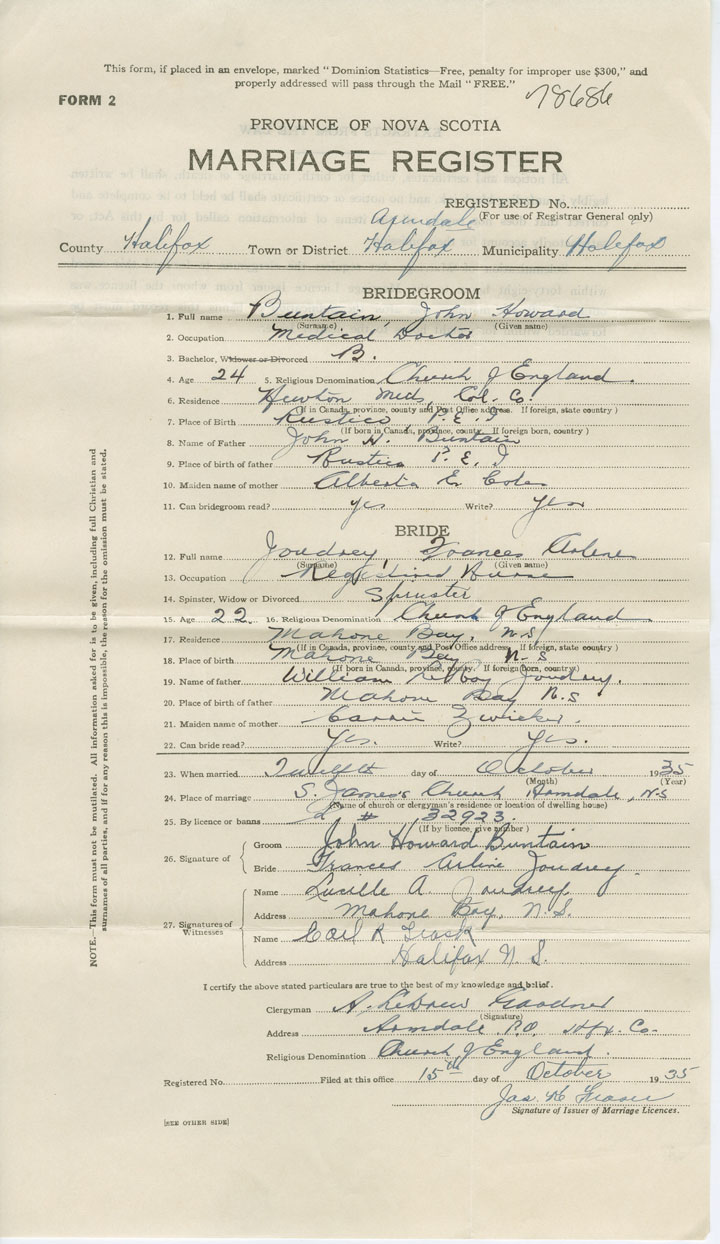 This form, if placed in an envelope, marked "Dominion Statistics—Free, penalty for improper use $300," and
properly addressed will pass through the Mail "FREE."
FORM 2
78686
PROVINCE OF NOVA SCOTIA
MARRIAGE REGISTER
REGISTERED No.
(For use of Registrar General only)
Armdale
County Halifax Town or District Halifax Municipality Halifax
BRIDEGROOM
1. Full name Buntain, John Howard
(Surname) (Given name)
2. Occupation Medical Doctor
3. Bachelor, Widower or Divorced B.
4. Age 24 5. Religious Denomination Church of England.
6. Residence Meds, Col. Co.
(If in Canada, province, county and Post Office address. If foreign, state country)
7. Place of Birth Rustico, P. E. I
(If born in Canada, province, county. If foreign born, country)
8. Name of Father John H. Buntain
9. Place of birth of father Rustico P. E. I
10. Maiden name of mother Alberta E. Coles
11. Can bridegroom read? yes Write? yes
BRIDE
12. Full name Joudrey, Frances Arlene
(Surname) (Given name)
13. Occupation Registered Nurse
14. Spinster, Widow or Divorced Spinster
15. Age 22. 16. Religious Denomination Church of England
17. Residence Mahone Bay, N-S
(If in Canada, province, county and Post Office address, If foreign, state country)
18. Place of birth Mahone Bay N-S
(If born in Canada, province, county. If foreign born, country)
19. Name of father William Joudrey.
20. Place of birth of father Mahone Bay N.S
21. Maiden name of mother Carrie Zwicker.
22. Can bride read? Yes. Write? Yes.
23. When married Twelfth day of October 1935
(Month) (Year)
24. Place of marriage S. James's Church Armdale, N-S
(Name of church or clergyman's residence or location of dwelling house)
25. By licence or banns L # 32923.
(If by licence, give number)
26. Signature of
Groom John Howard Buntain
Bride Frances Arline Joudrey.
27. Signatures of Witnesses
Name Lucille A. Joudrey
Address Mahone Bay, N.S.
Name Carl R Trask
Address Halifax N. S.
I certify the above stated particulars are true to the best of my knowledge and belief.
Clergyman A.
(Signature)
Address Armdale P.O. Hfx. Co.
Religious Denomination Church of England.
Registered No. Filed at this office 15th day of October 1935
Jas. H Fraser
Signature of Issuer of Marriage Licences.
[SEE OTHER SIDE]
NOTE.—This form must not be mutilated. All information asked for is to be given, including full Christian and
surnames of all parties, and if for any reason this is impossible, the reason for the omission must be stated.